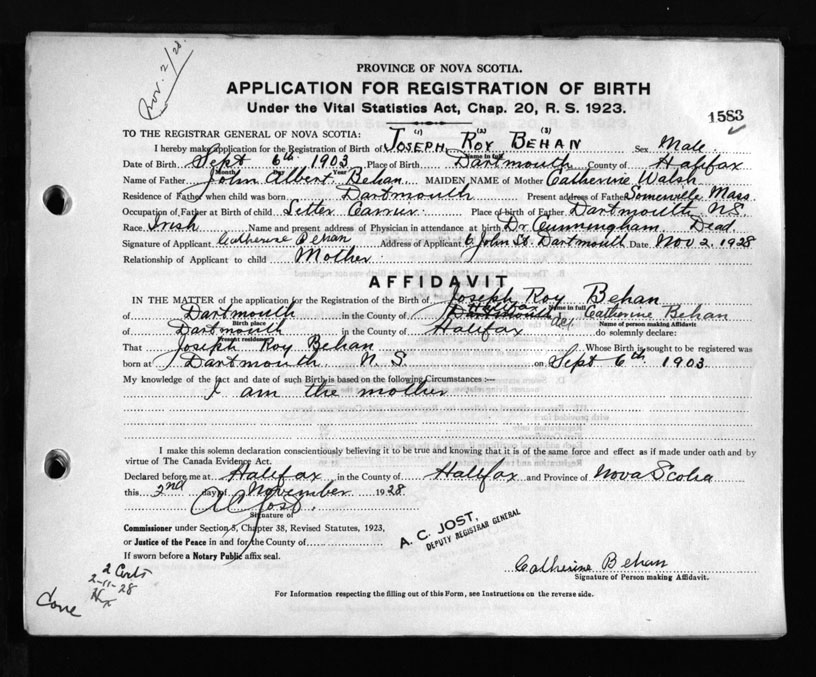 Nov. 2/28.
PROVINCE OF NOVA SCOTIA.
APPLICATION FOR REGISTRATION OF BIRTH
Under the Vital Statistics Act, Chap. 20, R. S. 1923.
1583
TO THE REGISTRAR GENERAL OF NOVA SCOTIA:
(1) (2) (3)
I hereby make application for the Registration of Birth of JOSEPH ROY BEHAN Sex Male
Name in full
Date of Birth Sept 6th 1903 Place of Birth Dartmouth County of Halifax
Month Day Year
Name of Father John Albert Behan MAIDEN NAME of Mother Catherine Walsh
Residence of Father when child was born Dartmouth Present address of Father Somerville Mass.
Occupation of Father at Birth of child Letter Carrier Place of birth of Father Dartmouth N.S.
Race Irish Name and present address of Physician in attendance at birth Dr Cunningham Dead
Signature of Applicant Catherine Behan Address of Applicant 6 John St. Dartmouth Date Nov 2, 1928
Relationship of Applicant to child Mother
AFFIDAVIT
IN THE MATTER of the application for the Registration of the Birth of Joseph Roy Behan
Name in full
of Dartmouth in the County of Halifax Dartmouth Catherine Behan
Birth place Name of person making Affidavit
of Dartmouth in the County of Halifax do solemnly declare:
Present residence
That Joseph Roy Behan Whose Birth is sought to be registered was
born at Dartmouth N. S. on Sept 6th 1903
My knowledge of the fact and date of such Birth is based on the following Circumstances :—
I am the mother
I make this solemn declaration conscientiously believing it to be true and knowing that it is of the same force and effect as if made under oath and by
virtue of The Canada Evidence Act.
Declared before me at Halifax in the County of Halifax and Province of Nova Scotia
this 2nd day of November 1928
A C Jost.
Signature of
Commissioner under Section 8, Chapter 38, Revised Statutes, 1923,
or Justice of the Peace in and for the County of
If sworn before a Notary Public affix seal.
A. C. JOST,
DEPUTY REGISTRAR GENERAL
Catherine Behan
Signature of Person making Affidavit.
2 Certs
2-11-28
For Information respecting the filling out of this Form, see Instructions on the reverse side.